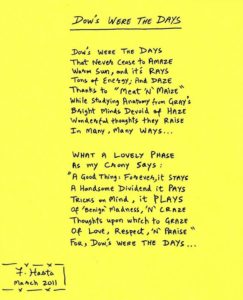 Dow's Were The Days
Dow's Were The Days
That Never Cease to Amaze
Warm Sun, and it's Rays
Tons of Energy; And Daze
Thanks to "Meat 'N' Maize"
While Studying Anatomy from Gray's
Bright Minds Devoid of Haze
Wonderful thoughts they Raise
In Many, Many Ways...
What A Lovely Phase
As my Crony Says:
"A Good Thing: Forever, it Stays
A Handsome Dividend it Pays
Tricks on Mind, it Plays
Of 'Benign' Madness, 'N' Craze
Thoughts upon which to Graze
Of Love, Respect, 'N' Praise"
For, Dow's Were The Days...
F. Hasta
March 2011